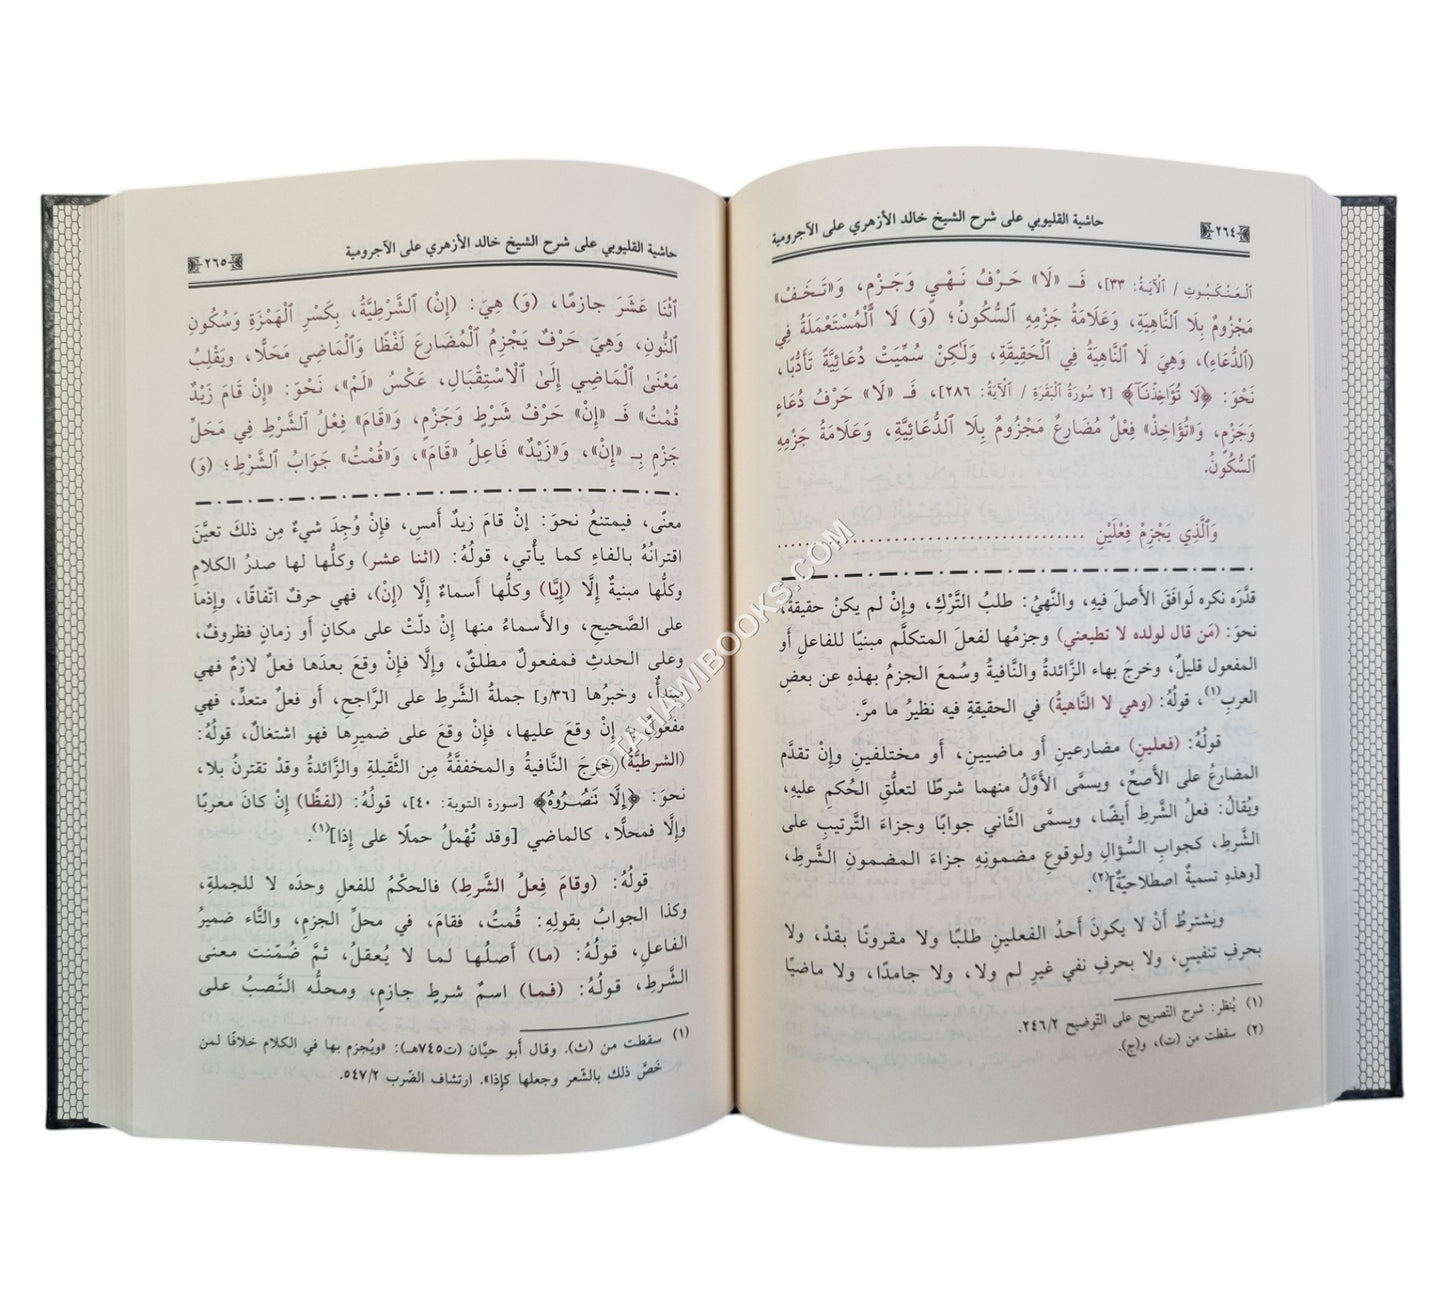 حاشية القليوبي على شرح الشيخ خالد الأزهري على الآجرومية
٢٦٤
اَلْعَنْكَبُوتِ / اَلْآيَةُ: ٣٣]، فَـ «لَا» حَرْفُ نَهْيٍ وَجَزْمٍ، وَ«تَخَفْ»
مَجْزُومٌ بِلَا اَلنَّاهِيَةِ، وَعَلَامَةُ جَزْمِهِ اَلسُّكُونُ؛ (وَ) لَا اَلْمُسْتَعْمَلَةُ فِي
(اَلدُّعَاءِ)، وَهِيَ لَا اَلنَّاهِيَةُ فِي اَلْحَقِيقَةِ، وَلَكِنْ سُمِّيَتْ دُعَائِيَّةً تَأَدُّبًا،
نَحْوَ: ﴿لَا تُؤَاخِذْنَآ﴾ [٢ سُورَةُ اَلْبَقَرَةِ / اَلْآيَةُ: ٢٨٦]، فَـ «لَا» حَرْفُ دُعَاءٍ
وَجَزْمٍ، وَ«تُؤَاخِذْ» فِعْلٌ مُضَارِعٌ مَجْزُومٌ بِلَا اَلدُّعَائِيَّةِ، وَعَلَامَةُ جَزْمِهِ
اَلسُّكُونُ.
وَاَلَّذِي يَجْزِمُ فِعْلَيْنِ ......................................
قدَّرَه نكره لَوافَقَ الأصلَ فيهِ، والنَّهيُ: طلبُ التَّركِ، وإنْ لم يكنْ حقيقةً،
نحوَ: (مَن قال لولده لا تطيعني) وجزمُها لفعلَ المتكلِّم مبنيًا للفاعلِ أو
المفعول قليلٌ، وخرجَ بهاء الزَّائدةُ والنَّافيةُ وسُمعَ الجزمُ بهذهِ عن بعضِ
العربِ(١)، قولُهُ: (وهي لا النَّاهيةُ) في الحقيقةِ فيه نظيرُ ما مرَّ.
قولُهُ: (فعلينِ) مضارعينِ أو ماضيينِ، أو مختلفينِ وإنْ تقدَّم
المضارعُ على الأصحِّ، ويسمى الأوَّلُ منهما شرطًا لتعلُّقِ الحُكمِ عليهِ،
ويُقالُ: فعلُ الشَّرطِ أيضًا، ويسمَّى الثَّاني جوابًا وجزاءَ التَّرتيبِ على
الشَّرطِ، كجوابِ السُّؤالِ ولوقوعِ مضمونهِ جزاءَ المضمونِ الشَّرطِ،
[وهذهِ تسميةٌ اصطلاحيَّةٌ](٢).
ويشترطُ أنْ لا يكونَ أحدُ الفعلينِ طلبًا ولا مقرونًا بقدْ، ولا
بحرفِ تنفيسٍ، ولا بحرفِ نفيٍ غيرِ لم ولا، ولا جامدًا، ولا ماضيًا
(١) يُنظر: شرح التّصريح على التّوضيح ٢٤٦/٢.
(٢) سقطت من (ت)، و(ج).
حاشية القليوبي على شرح الشيخ خالد الأزهري على الآجرومية
٢٦٥
اَثْنَا عَشَرَ جازمًا، (وَ) هِيَ: (إِنْ) اَلشَّرْطِيَّةُ، بِكَسْرِ اَلْهَمْزَةِ وَسُكُونِ
اَلنُّونِ، وَهِيَ حَرْفٌ يَجْزِمُ اَلْمُضَارِعَ لَفْظًا وَاَلْمَاضِي مَحَلًّا، ويَقْلِبُ
مَعْنَىٰ اَلْمَاضِي إِلَىٰ اَلْاسْتِقْبَالِ، عَكْسُ «لَمْ»، نَحْوَ: «إِنْ قَامَ زَيْدٌ
قُمْتُ» فَـ «إِنْ» حَرْفُ شَرْطٍ وَجَزْمٍ، وَ«قَامَ» فِعْلُ الشَّرْطِ فِي مَحَلِّ
جَزْمٍ بِـ «إِنْ»، وَ«زَيْدٌ» فَاعِلُ «قَامَ»، وَ«قُمْتُ» جَوَابُ الشَّرْطِ؛ (وَ)
معنًى، فيمتنعُ نحوَ: إنْ قامَ زيدٌ أمسِ، فإنْ وُجِدَ شيءٌ مِن ذلكَ تعيَّنَ
اقترانُهُ بالفاءِ كما يأتي، قولُهُ: (اثنا عشر) وكلُّها لها صدرُ الكلامِ
وكلُّها مبنيةٌ إلَّا (إيَّا) وكلُّها أسماءٌ إلَّا (إنْ)، فهي حرفٌ اتّفاقًا، وإذما
على الصَّحيحِ، والأسماءُ منها إنْ دلّتْ على مكانٍ أو زمانٍ فظروفٌ،
وعلى الحدثِ فمفعولٌ مطلقٌ، وإلَّا فإنْ وقعَ بعدَها فعلٌ لازمٌ فهي
مبتدأٌ، وخبرُها [٣٦/و] جملةُ الشَّرطِ على الرَّاجحِ، أو فعلٌ متعدٍّ، فهي
مفعولٌ به إنْ وقعَ عليها، فإنْ وقعَ على ضميرِها فهو اشتغالٌ، قولُهُ:
(الشرطيَّةُ) خرجَ النَّافيةُ والمخففَّةُ مِن الثَّقيلةِ والزَّائدةُ وقدْ تقترنُ بلا،
نحوَ: ﴿إِلَّا تَنصُرُوهُ﴾ [سورة التوبة: ٤٠]، قولُهُ: (لفظًا) إنْ كانَ معربًا
وإلَّا فمحلًا، كالماضي [وقد تُهْملُ حملًا على إذا](١).
قولُهُ: (وقامَ فِعلُ الشَّرطِ) فالحكْمُ للفعلِ وحدَه لا للجملةِ،
وكذا الجوابُ بقولِهِ: قُمتُ، فقامَ، في محلِّ الجزمِ، والتَّاء ضميرُ
الفاعلِ، قولُهُ: (ما) أصلُها لما لا يُعقلُ، ثمَّ ضُمّنت معنى
الشَّرطِ، قولُهُ: (فما) اسمُ شرطٍ جازمٍ، ومحلُّه النَّصبُ على
(١) سقطت من (ث). وقال أبو حيَّان (ت٧٤٥هـ): «ويُجزم بها في الكلام خلافًا لمن
خَصَّ ذلك بالشّعر وجعلها كإذا». ارتشاف الضّرب ٥٤٧/٢.
©TAHAWIBOOKS.COM